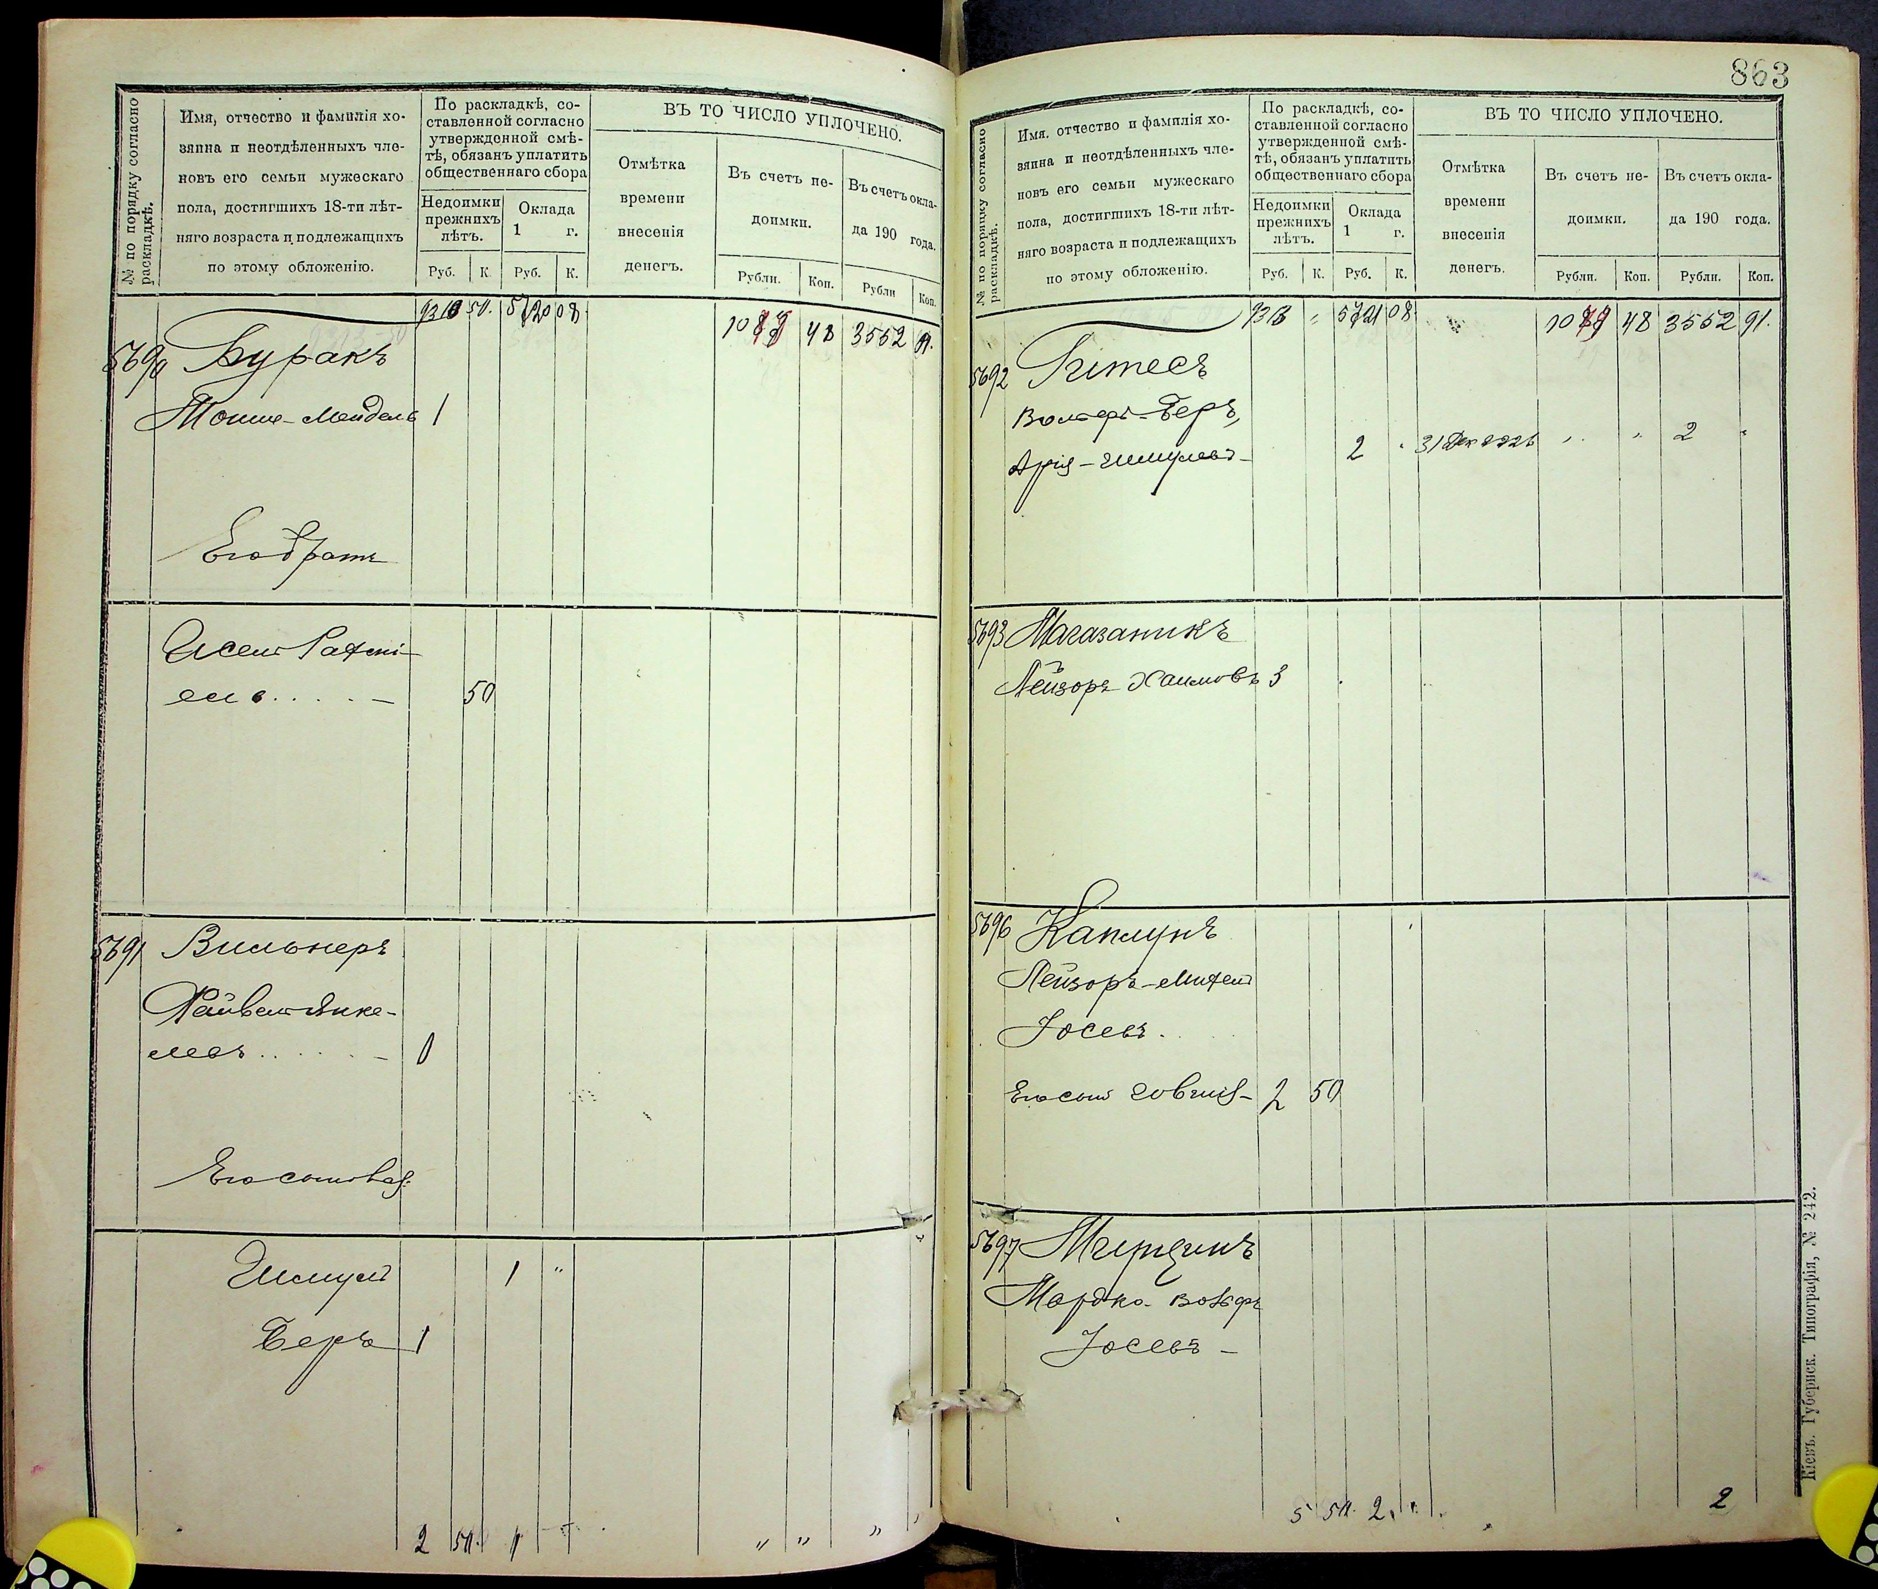 № по порядку согласно раскладкѣ.
Имя, отчество и фамилія хо-
зяина и неотдѣленныхъ чле-
новъ его семьи мужескаго
пола, достигшихъ 18-ти лѣт-
няго возраста и подлежащихъ
по этому обложенію.
По раскладкѣ, со-
ставленной согласно
утвержденной смѣ-
тѣ, обязанъ уплатить
общественнаго сбора
Недоимки
прежнихъ
лѣтъ.
Оклада
1 г.
Руб. К. Руб. К.
ВЪ ТО ЧИСЛО УПЛОЧЕНО.
Отмѣтка
времени
внесенія
денегъ.
Въ счетъ не-
доимки.
Въ счетъ окла-
да 190 года.
Рубли. Коп. Рубли Коп.
50. 08 48 3552
5690 Буракъ
Мендель 1
Его братъ
50
5691 Вильнеръ
левъ 0
Его сыновья:
Шмуль 1 "
Беръ 1
2 50. 1 " " "
863
№ по порядку согласно раскладкѣ.
Имя. отчество и фамилія хо-
зяина и неотдѣленныхъ чле-
новъ его семьи мужескаго
пола, достигшихъ 18-ти лѣт-
няго возраста и подлежащихъ
по этому обложенію.
По раскладкѣ, со-
ставленной согласно
утвержденной смѣ-
тѣ, обязанъ уплатить
общественнаго сбора
Недоимки
прежнихъ
лѣтъ.
Оклада
1 г.
Руб. К. Руб. К.
ВЪ ТО ЧИСЛО УПЛОЧЕНО.
Отмѣтка
времени
внесенія
денегъ.
Въ счетъ не-
доимки.
Въ счетъ окла-
да 190 года.
Рубли. Коп. Рубли. Коп.
08 48 3552 91.
5692
Вольфъ-Беръ,
Арія-Шмулевъ 2 31 2
5693 Магазаникъ
Лейзоръ Хаимовъ 3
5696 Каплунъ
Лейзоръ-Михель
Іосевъ.
Его сынъ Товпія 2 50
5697
Мордко-Вольфъ
Іосевъ
5 50. 2 2
Кіевъ. Губернск. Типографія, № 242.